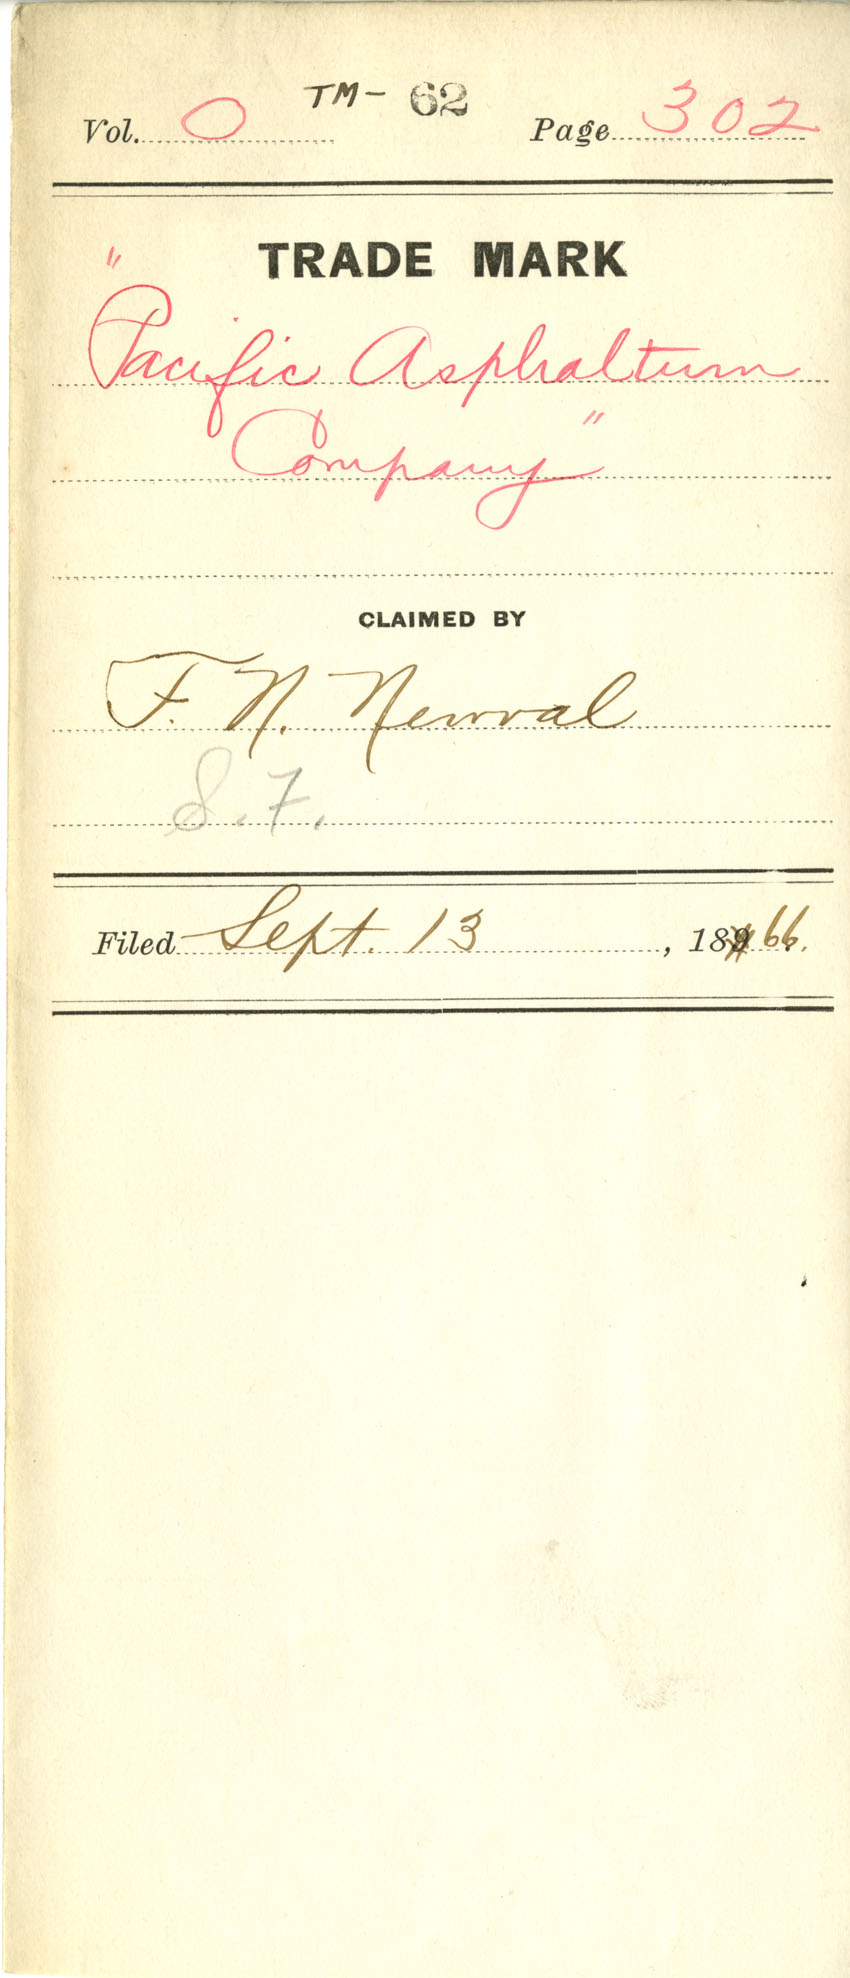 TM- 62
Vol. 0 Page 302
TRADE MARK
"Pacific Asphaltum
Company"
CLAIMED BY
F. N. Newval
S.F.
Filed Sept. 13, 1866.